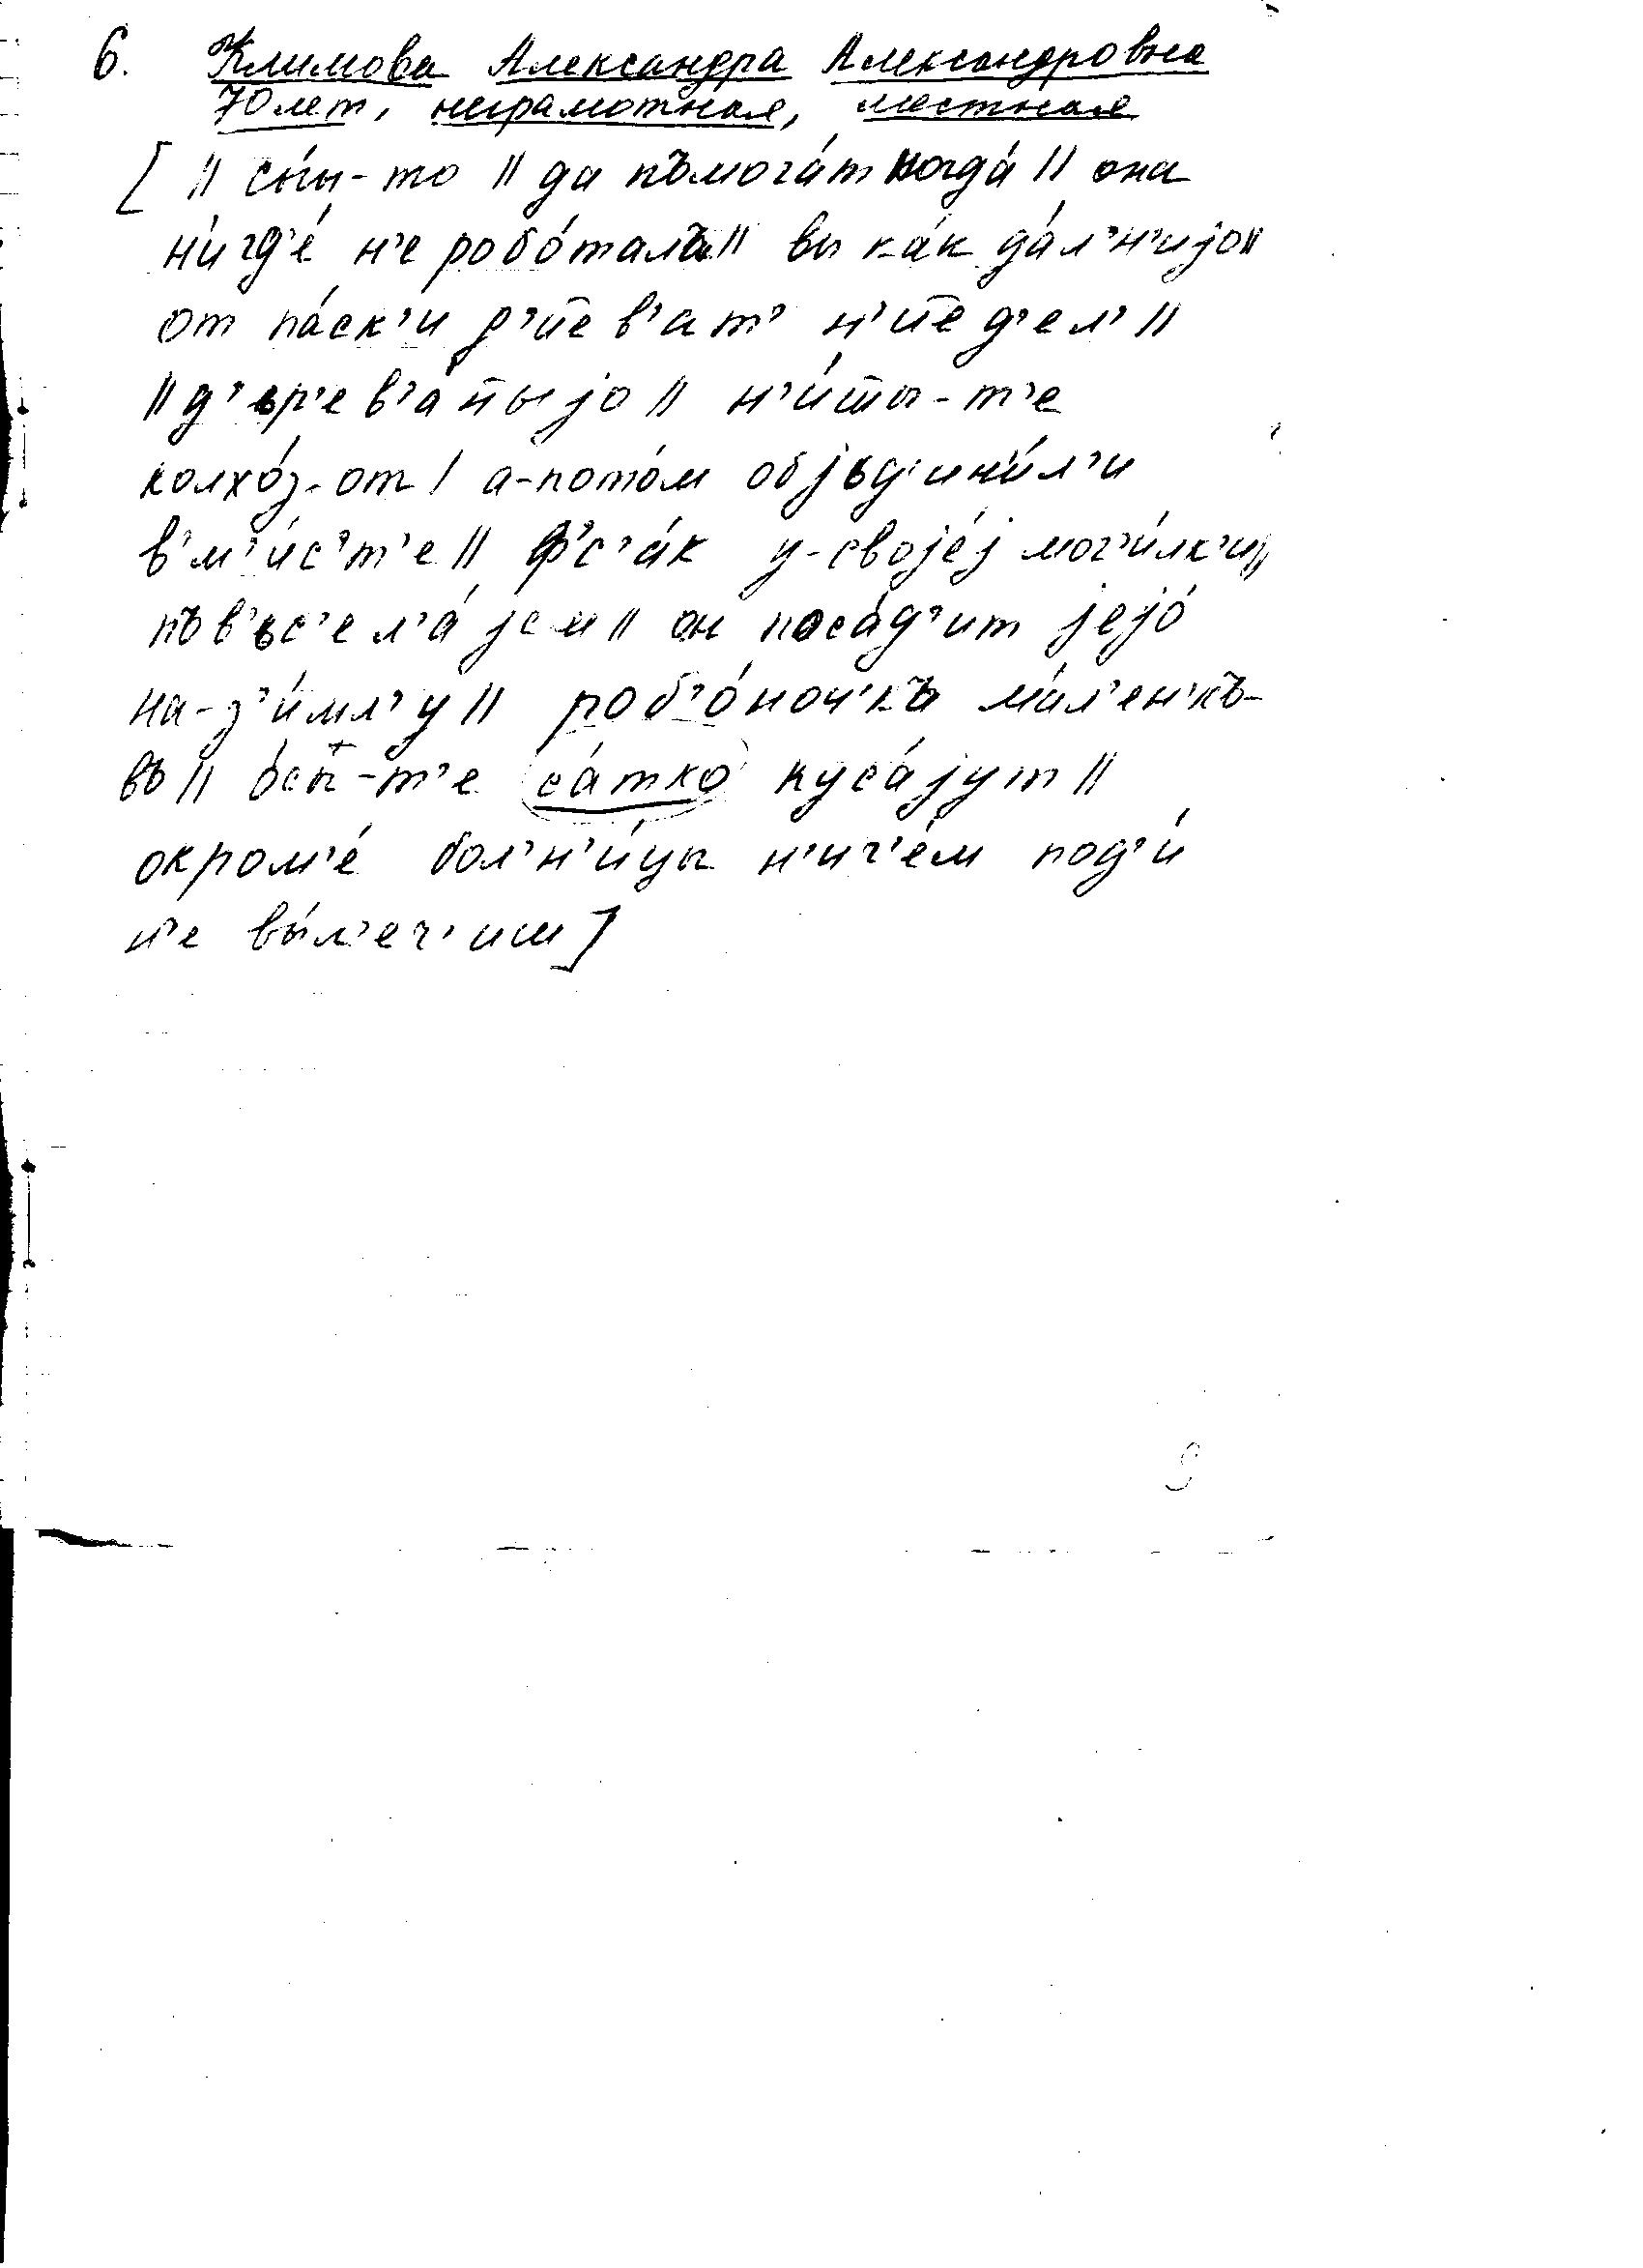 6. Климова Александра Александровна
70 лет, неграмотная, местная
[ || сы́ы-то || да пъмога́т когда́ || она
н'игд'е́ н'е робо́талъ || вы ка́к да́л'н'иjо ||
от па́ск'и д'и͡ев'ат' н'и͡ед'ел' ||
|| д'ър'ев'а́ныjо || н'и́ты-т'е
колхо́з-от | а-пото́м обjъд'ин'и́л'и
в'м'и́с'т'е || ф'с'а́к у-своjе́j мог'и́лк'и ||
пъв'ьс'ел'а́jем || он поса́д'ит jejо́
на-з'и́мл'у || роб'о́ноч'къ ма́л'ен'къ-
въ || о́сы-т'е са́тко куса́jут ||
окром'е́ бол'н'и́цы н'ич'е́м под'и́
н'е вы́л'еч'иш ]